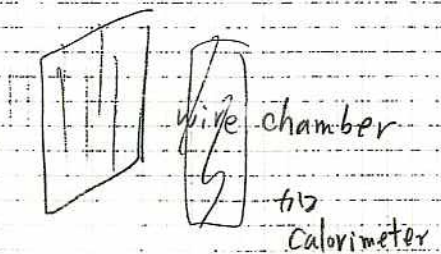 wire chamber
カロ
Calorimeter